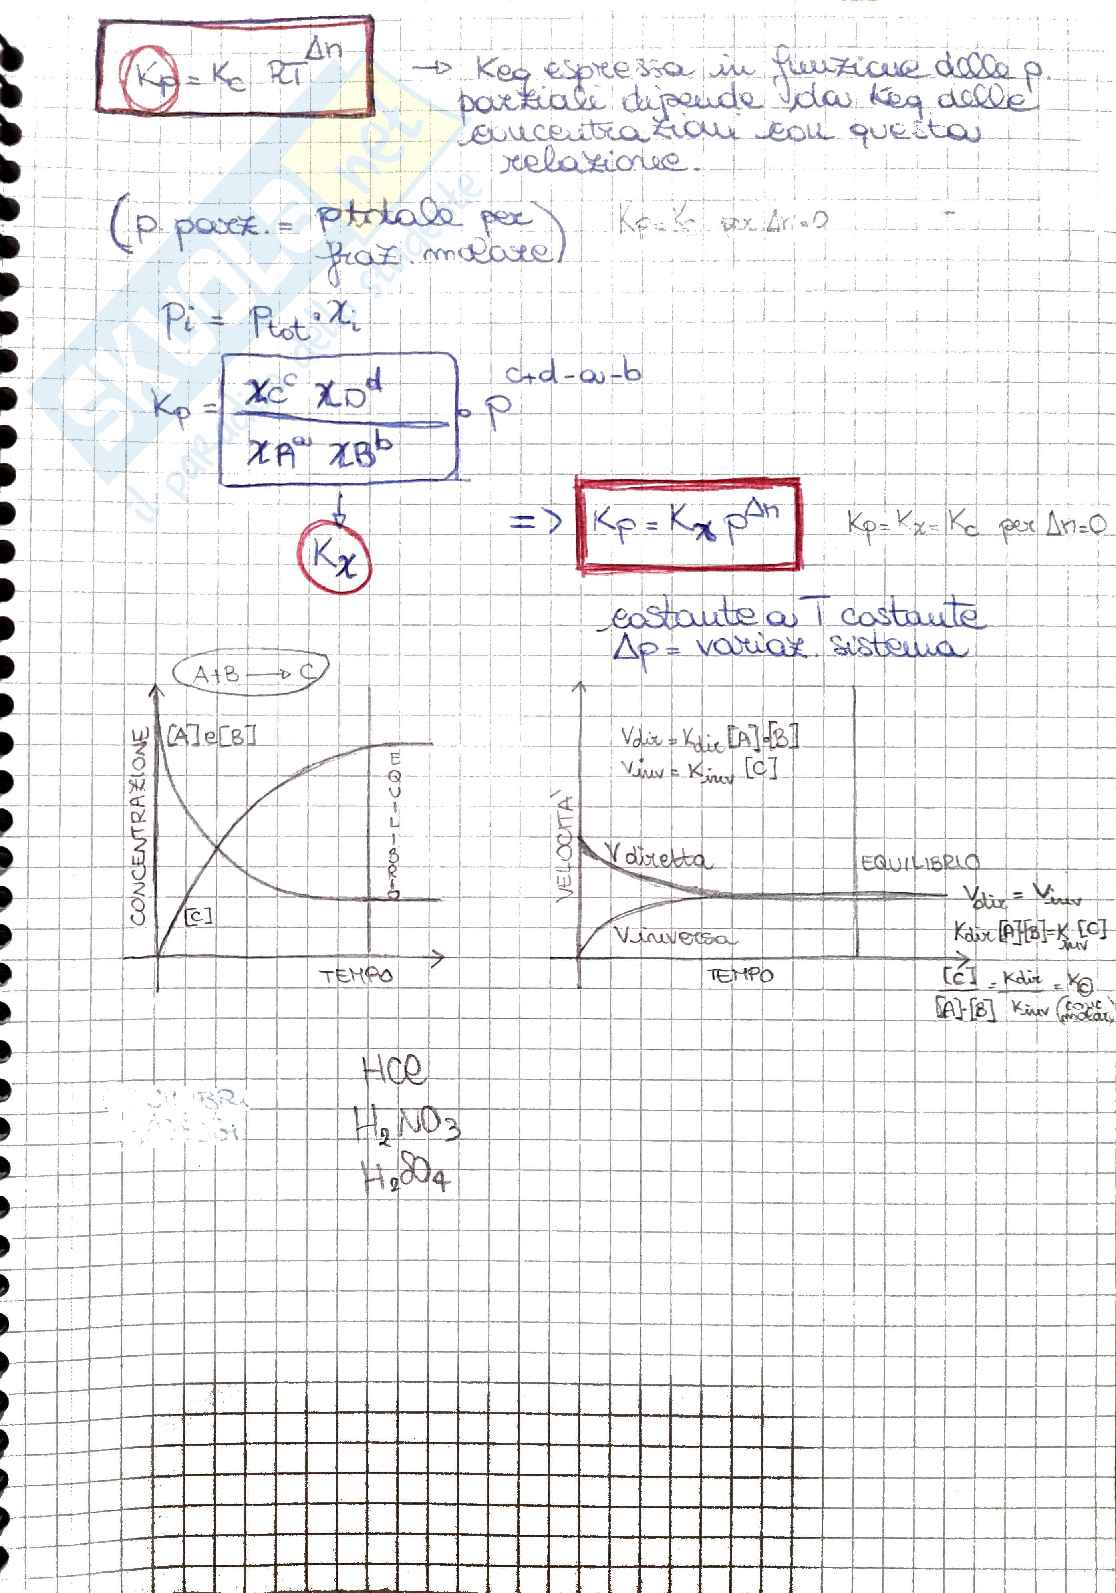 Kp = Kc RT^Δn → Keq espressa in funzione delle p.
parziali dipende da Keq delle
concentrazioni con questa
relazione.
(p parz. = ptotale per
fraz. molare)
Kp = Kc per Δn=0
Pi = Ptot · χi
Kp = χC^c χD^d / χA^a χB^b · P^c+d-a-b
↓
Kχ
=> Kp = Kχ P^Δn
Kp = Kχ = Kc per Δn=0
costante a T costante
Δp = variaz. sistema
A+B → C
CONCENTRAZIONE
[A] e [B]
[C]
EQUILIBRIO
TEMPO
VELOCITÀ
Vdir = Kdir [A]·[B]
Vinv = Kinv [C]
V diretta
V inversa
EQUILIBRIO
TEMPO
Vdir = Vinv
Kdir [A]·[B] = Kinv [C]
[C] / [A]·[B] = Kdir / Kinv = Kc (conc molar.)
HCl
H2NO3
H2SO4
SKUOLA.net
il paradiso dello studente